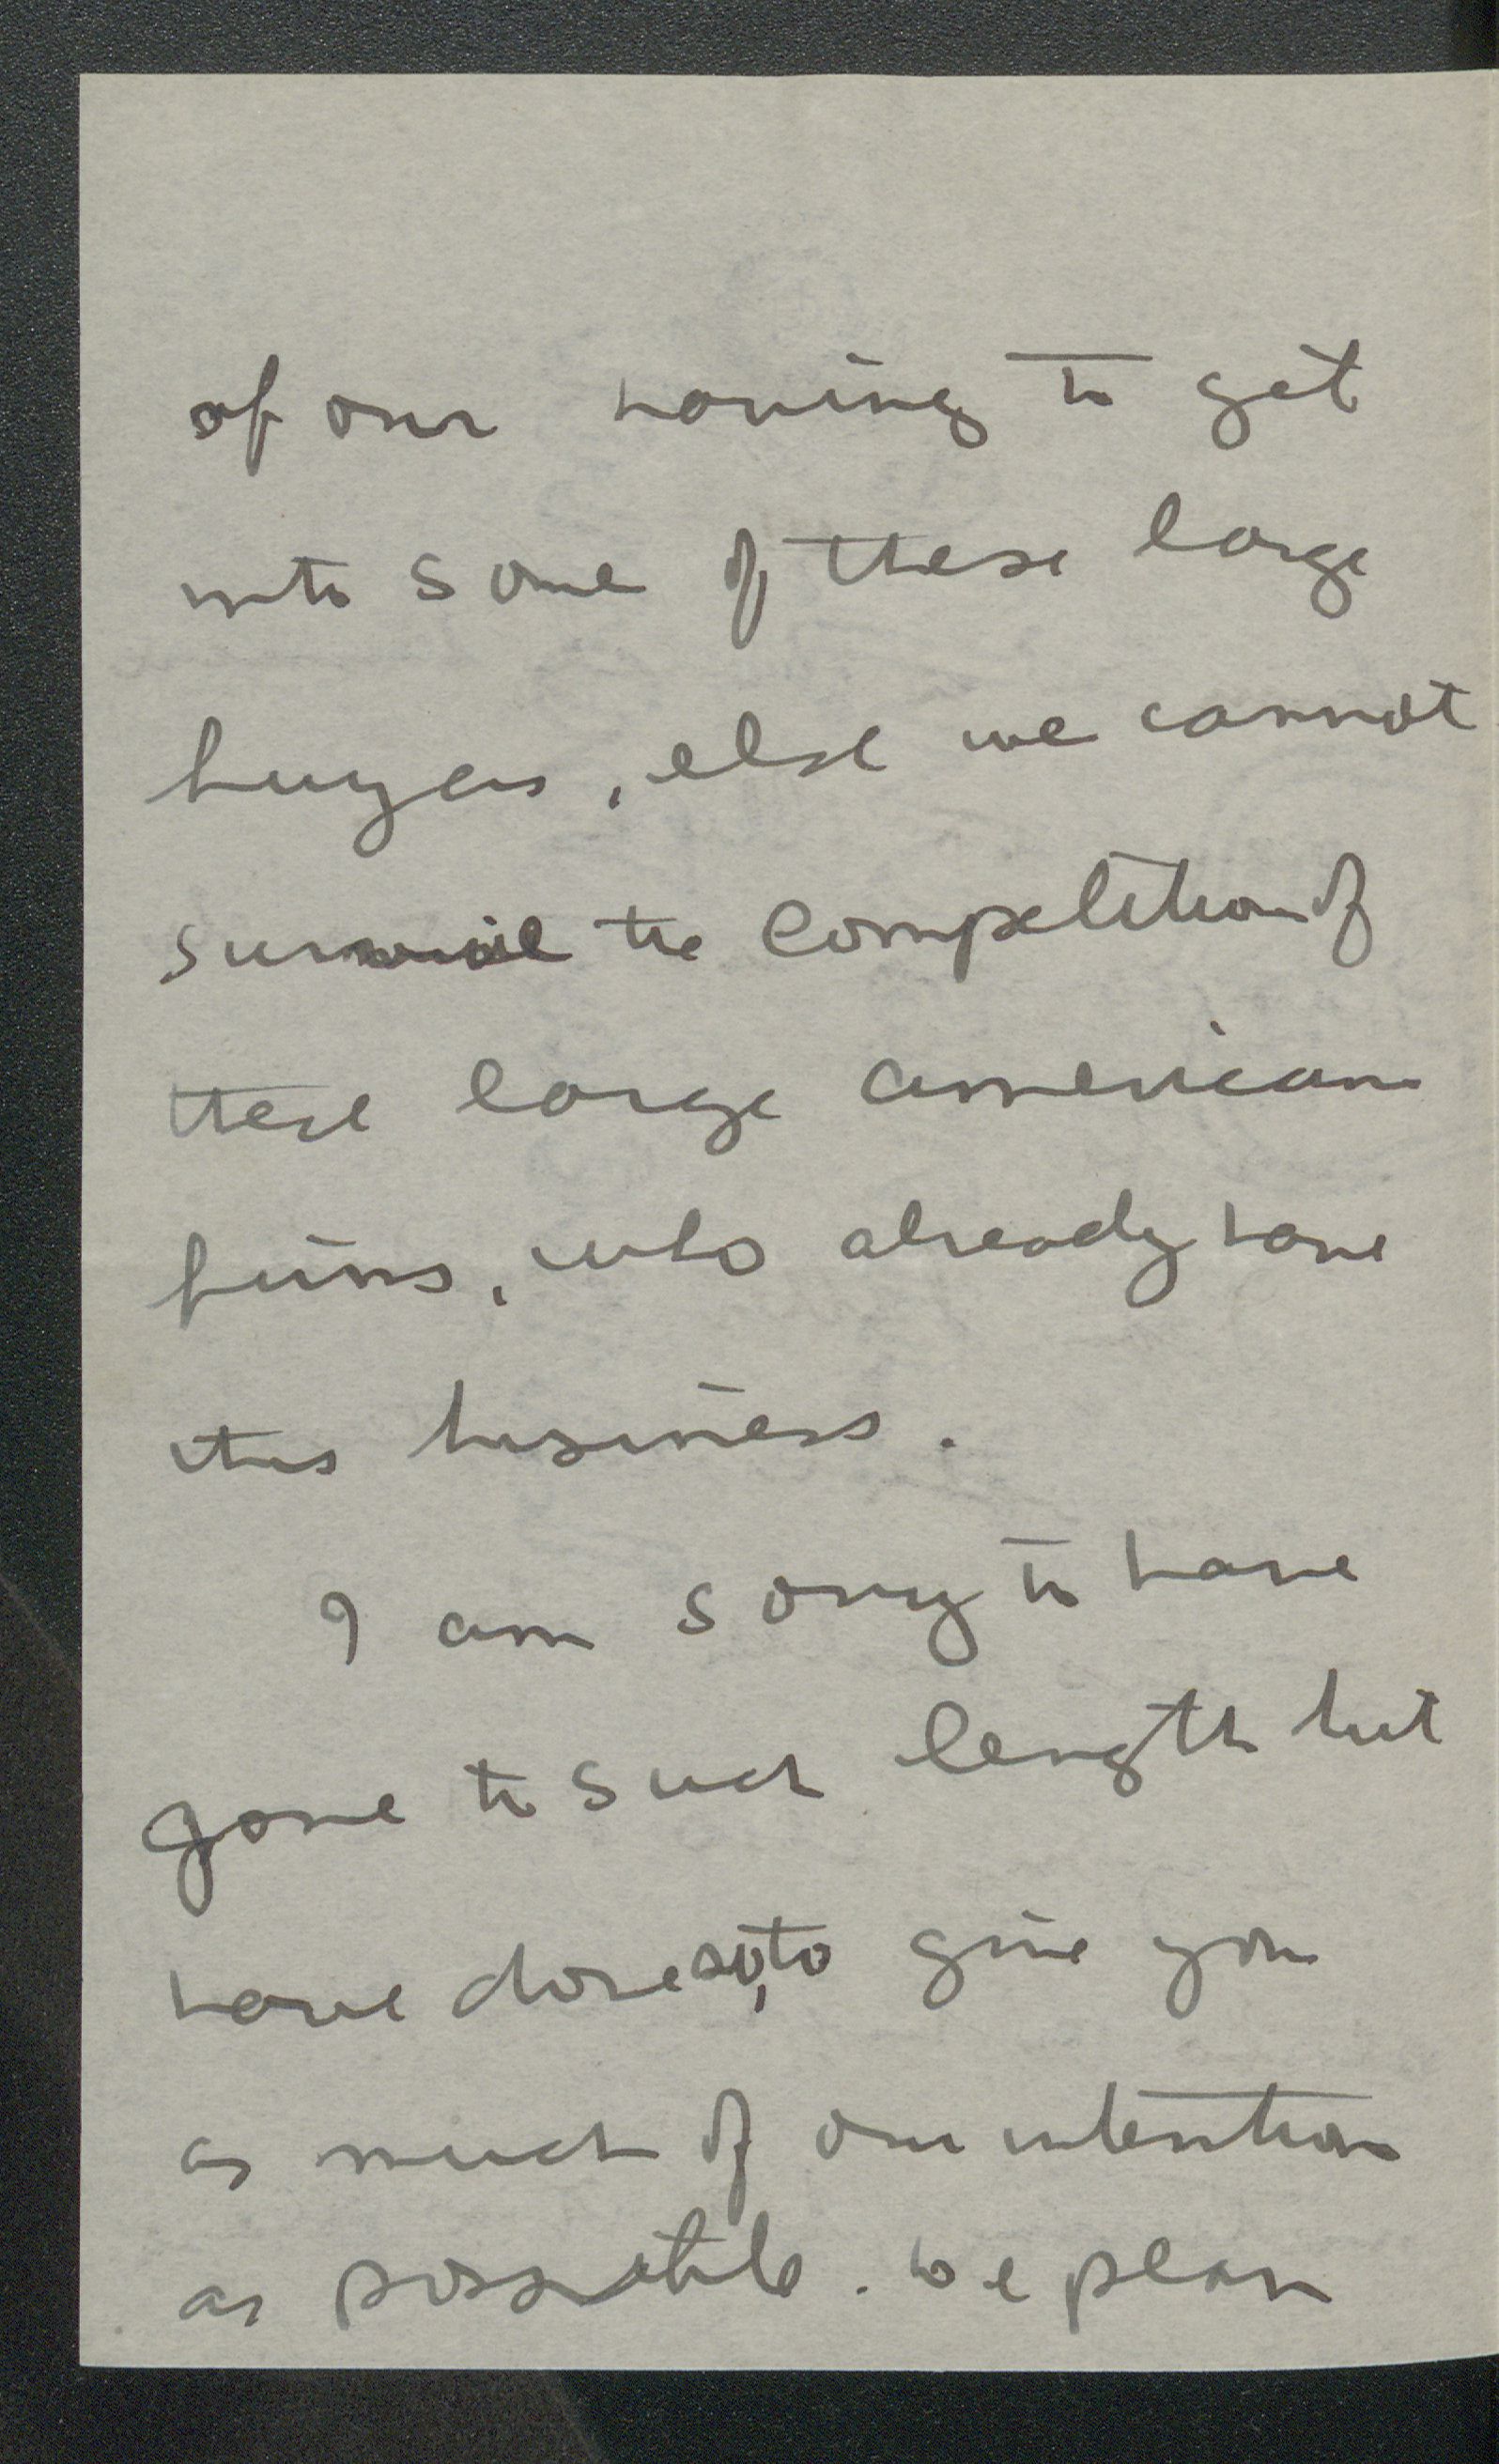 of our having to get
into some of these large
buyers, else we cannot
survive the competition of
these large american
firms, who already have
this business.
I am sorry to have
gone to such length but
have done so, to give you
as much of our intention
as possible. We plan